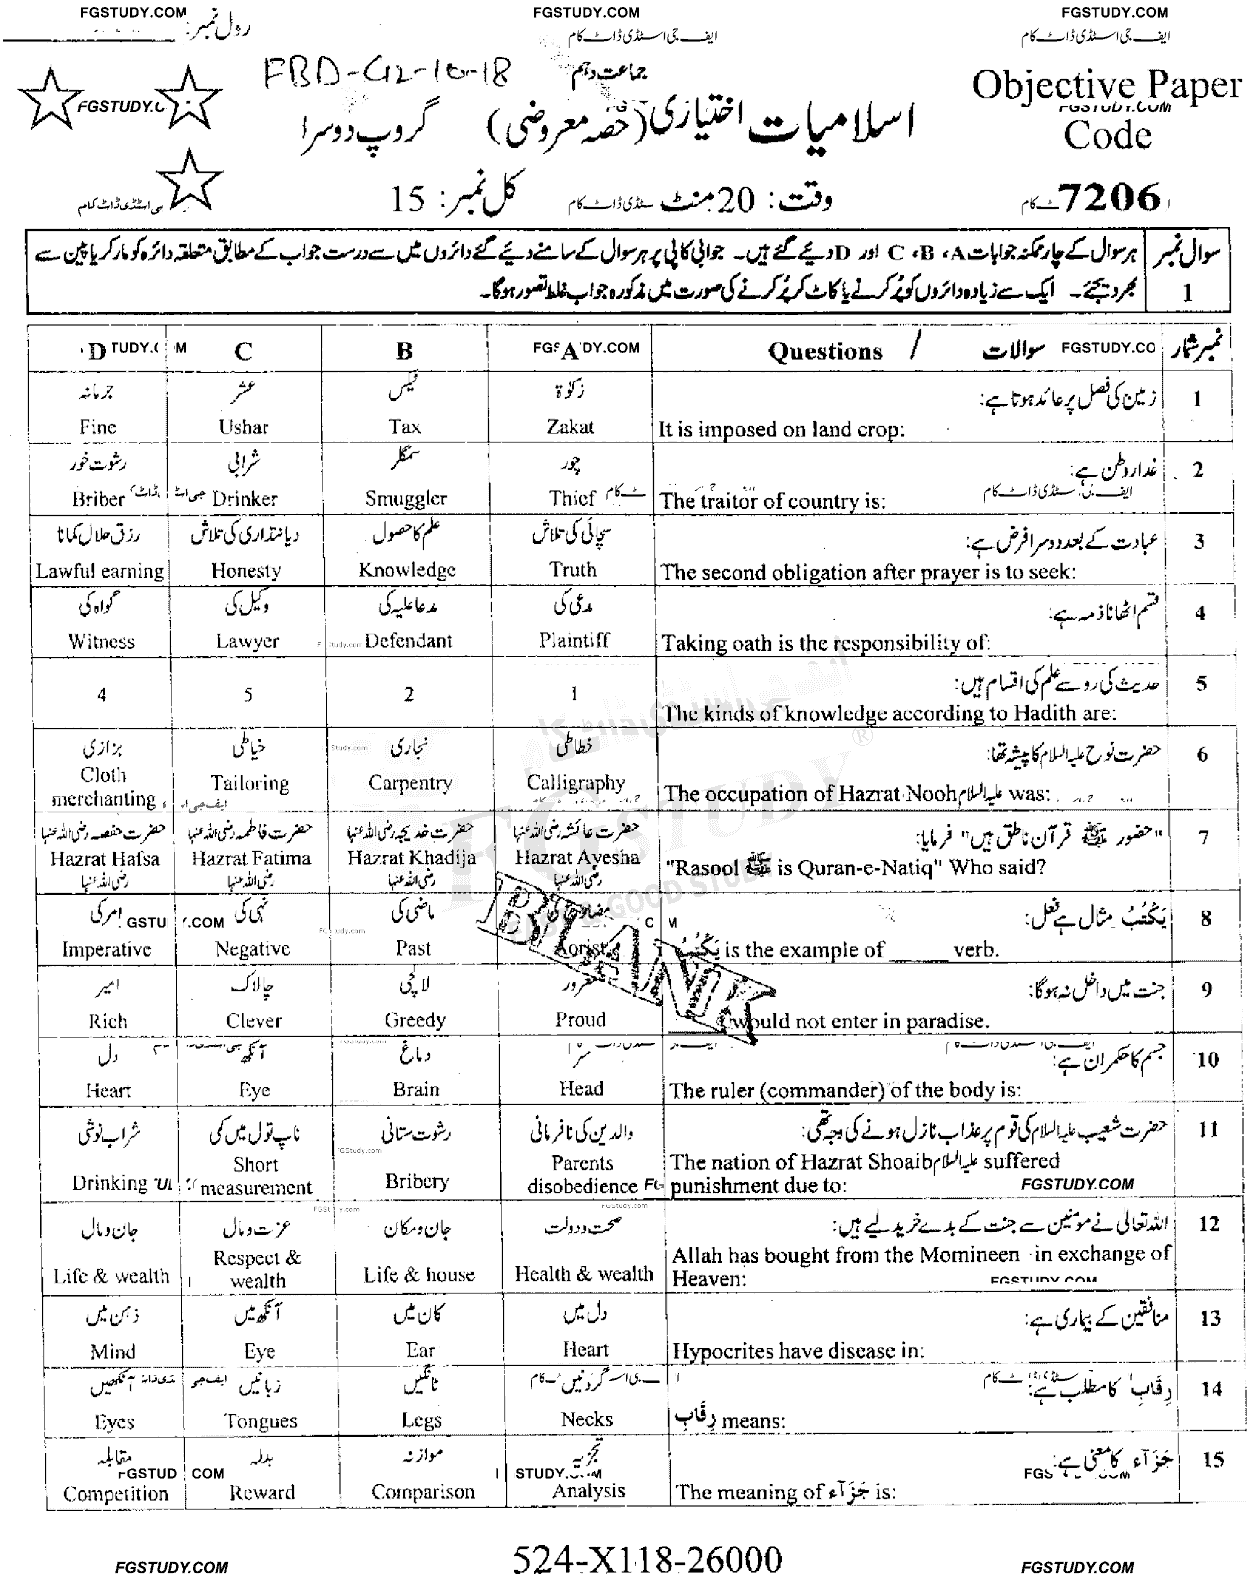 FGSTUDY.COM FGSTUDY.COM FGSTUDY.COM
رول نمبر: ایف جی اسٹڈی ڈاٹ کام ایف جی اسٹڈی ڈاٹ کام
FBD-G2-10-18 جماعت دہم
Objective Paper
Code
7206
اسلامیات اختیاری (حصہ معروضی) گروپ دوسرا
وقت: 20 منٹ کل نمبر: 15
سوال نمبر 1
ہر سوال کے چار ممکنہ جوابات A، B، C اور D دیئے گئے ہیں۔ جوابی کاپی پر ہر سوال کے سامنے دیئے گئے دائروں میں سے درست جواب کے مطابق متعلقہ دائرہ کو مارکر یا پین سے
بھر دیجئے۔ ایک سے زیادہ دائروں کو پُر کرنے یا کاٹ کر پُر کرنے کی صورت میں مذکورہ جواب غلط تصور ہوگا۔
نمبر شمار سوالات / Questions A B C D
1 زمین کی فصل پر عائد ہوتا ہے: زکوٰۃ ٹیکس عشر جرمانہ
It is imposed on land crop: Zakat Tax Ushar Fine
2 غدار وطن ہے: چور سمگلر شرابی رشوت خور
The traitor of country is: Thief Smuggler Drinker Briber
3 عبادت کے بعد دوسرا فرض ہے: سچائی کی تلاش علم کا حصول دیانتداری کی تلاش رزق حلال کمانا
The second obligation after prayer is to seek: Truth Knowledge Honesty Lawful earning
4 قسم اٹھانا ذمہ ہے: مدعی کی مدعا علیہ کی وکیل کی گواہ کی
Taking oath is the responsibility of: Plaintiff Defendant Lawyer Witness
5 حدیث کی رو سے علم کی اقسام ہیں: 1 2 5 4
The kinds of knowledge according to Hadith are:
6 حضرت نوح علیہ السلام کا پیشہ تھا: خطاطی نجاری خیاطی بزازی
The occupation of Hazrat Nooh علیہ السلام was: Calligraphy Carpentry Tailoring Cloth merchanting
7 "حضور ﷺ قرآن ناطق ہیں" فرمایا: حضرت عائشہ رضی اللہ عنہا حضرت خدیجہ رضی اللہ عنہا حضرت فاطمہ رضی اللہ عنہا حضرت حفصہ رضی اللہ عنہا
"Rasool ﷺ is Quran-e-Natiq" Who said? Hazrat Ayesha رضی اللہ عنہا Hazrat Khadija رضی اللہ عنہا Hazrat Fatima رضی اللہ عنہا Hazrat Hafsa رضی اللہ عنہا
8 یَکْتُبُ مثال ہے فعل: ماضی کی نہی کی امر کی
یَکْتُبُ is the example of ______ verb. Aorist Past Negative Imperative
9 جنت میں داخل نہ ہوگا: مغرور لالچی چالاک امیر
______ would not enter in paradise. Proud Greedy Clever Rich
10 جسم کا حکمران ہے: سر دماغ آنکھ دل
The ruler (commander) of the body is: Head Brain Eye Heart
11 حضرت شعیب علیہ السلام کی قوم پر عذاب نازل ہونے کی وجہ تھی: والدین کی نافرمانی رشوت ستانی ناپ تول میں کمی شراب نوشی
The nation of Hazrat Shoaib علیہ السلام suffered punishment due to: Parents disobedience Bribery Short measurement Drinking
FGSTUDY.COM
12 اللہ تعالیٰ نے مومنین سے جنت کے بدلے خرید لیے ہیں: صحت و دولت جان و مکان عزت و مال جان و مال
Allah has bought from the Momineen in exchange of Heaven: Health & wealth Life & house Respect & wealth Life & wealth
13 منافقین کے بیماری ہے: دل میں کان میں آنکھ میں ذہن میں
Hypocrites have disease in: Heart Ear Eye Mind
14 رِقَاب کا مطلب ہے: گردنیں ٹانگیں زبانیں آنکھیں
رِقَاب means: Necks Legs Tongues Eyes
15 جَزَآء کا معنی ہے: تجزیہ موازنہ بدلہ مقابلہ
The meaning of جَزَآء is: Analysis Comparison Reward Competition
BLANK
FGSTUDY
524-X118-26000
FGSTUDY.COM FGSTUDY.COM